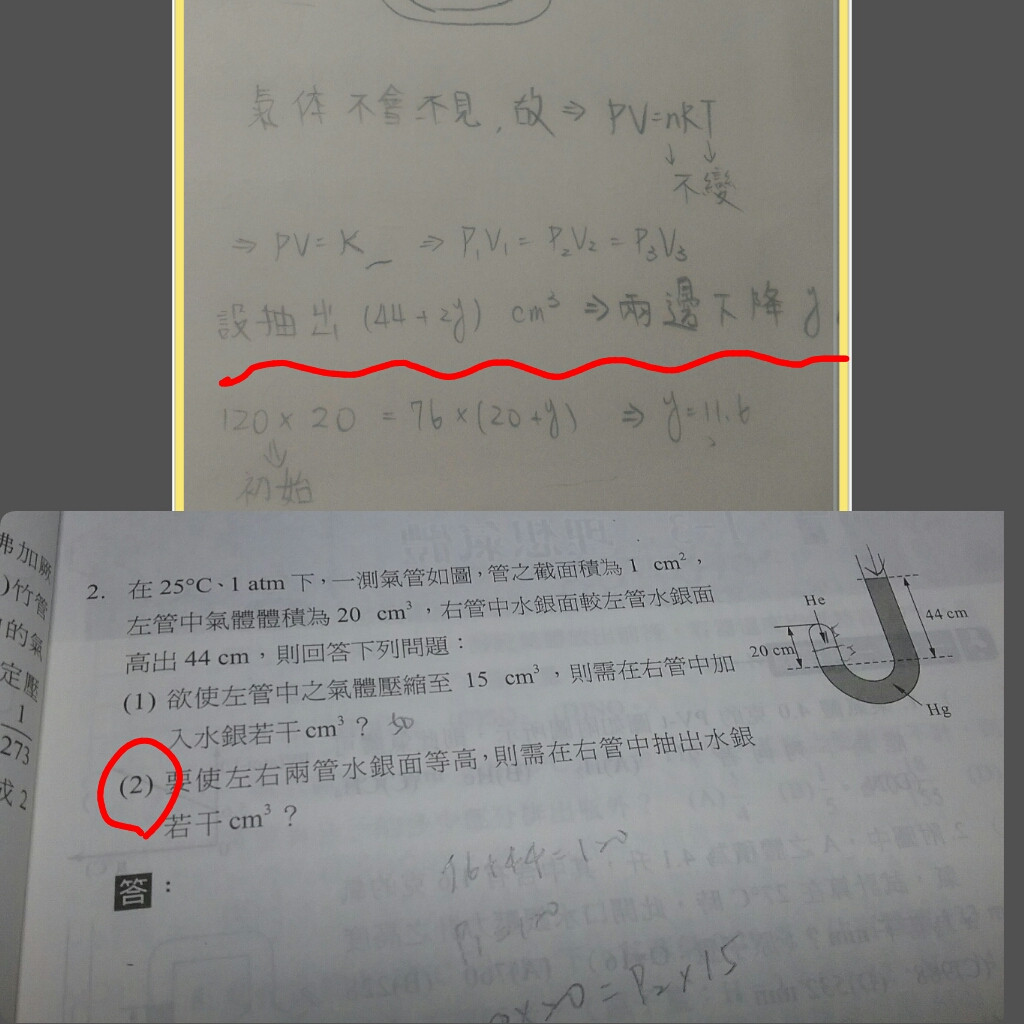 氣体不會不見,故⇒ PV=nRT
↓ ↓
不變
⇒ PV=K ⇒ P₁V₁ = P₂V₂ = P₃V₃
設抽出 (44+2y) cm³ ⇒ 兩邊下降 y
120 × 20 = 76 × (20+y) ⇒ y=11.6
初始
弗加厥
)竹管
的氣
定壓
1
273
成2
2. 在 25°C、1 atm 下,一測氣管如圖,管之截面積為 1 cm²,
左管中氣體體積為 20 cm³,右管中水銀面較左管水銀面
高出 44 cm,則回答下列問題:
(1) 欲使左管中之氣體壓縮至 15 cm³,則需在右管中加
入水銀若干 cm³?
(2) 要使左右兩管水銀面等高,則需在右管中抽出水銀
若干 cm³?
He
20 cm
44 cm
Hg
答:
76+44=120
P₂×15